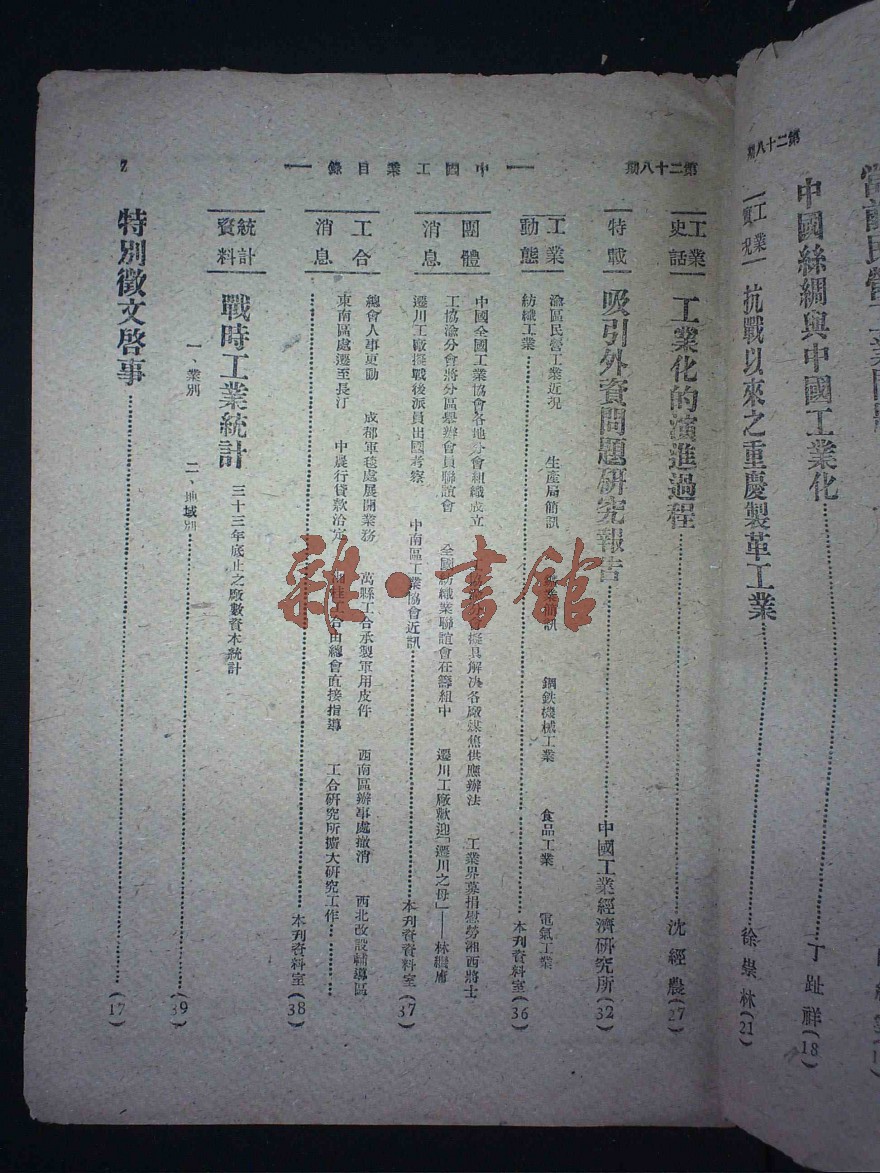 第二十八期
中國絲綢與中國工業化 丁趾祥(18)
工業實况 抗戰以來之重慶製革工業 徐崇林(21)
第二十八期
中國工業目錄
2
工業史話 工業化的演進過程 沈經農(27)
特載 吸引外資問題研究報告 中國工業經濟研究所(32)
工業動態 渝區民營工業近況 生產局簡訊 簡訊 鋼鉄機械工業 食品工業 電氣工業
紡織工業 本刋資料室(36)
團體消息 中國全國工業協會各地分會組織成立 擬具解决各廠煤焦供應辦法 工業界募捐慰勞湘西將士
工協渝分會將分區舉辦會員聯誼會 全國紡織業聯誼會在籌組中 遷川工廠歡迎「遷川之母」——林繼庸
遷川工廠擬戰後派員出國考察 中南區工業協會近訊 本刋資料室(37)
工合消息 總會人事更動 成都軍毯處展開業務 萬縣工合承製軍用皮件 西南區辦事處撤消 西北改設輔導區
東南區處遷至長汀 中農行貸款洽定 工合由總會直接指導 工合研究所擴大研究工作
本刋資料室(38)
統計資料 戰時工業統計 三十三年底止之廠數資本統計
一、業別 二、地域別 39
特別徵文啓事 (17)
雜·書館